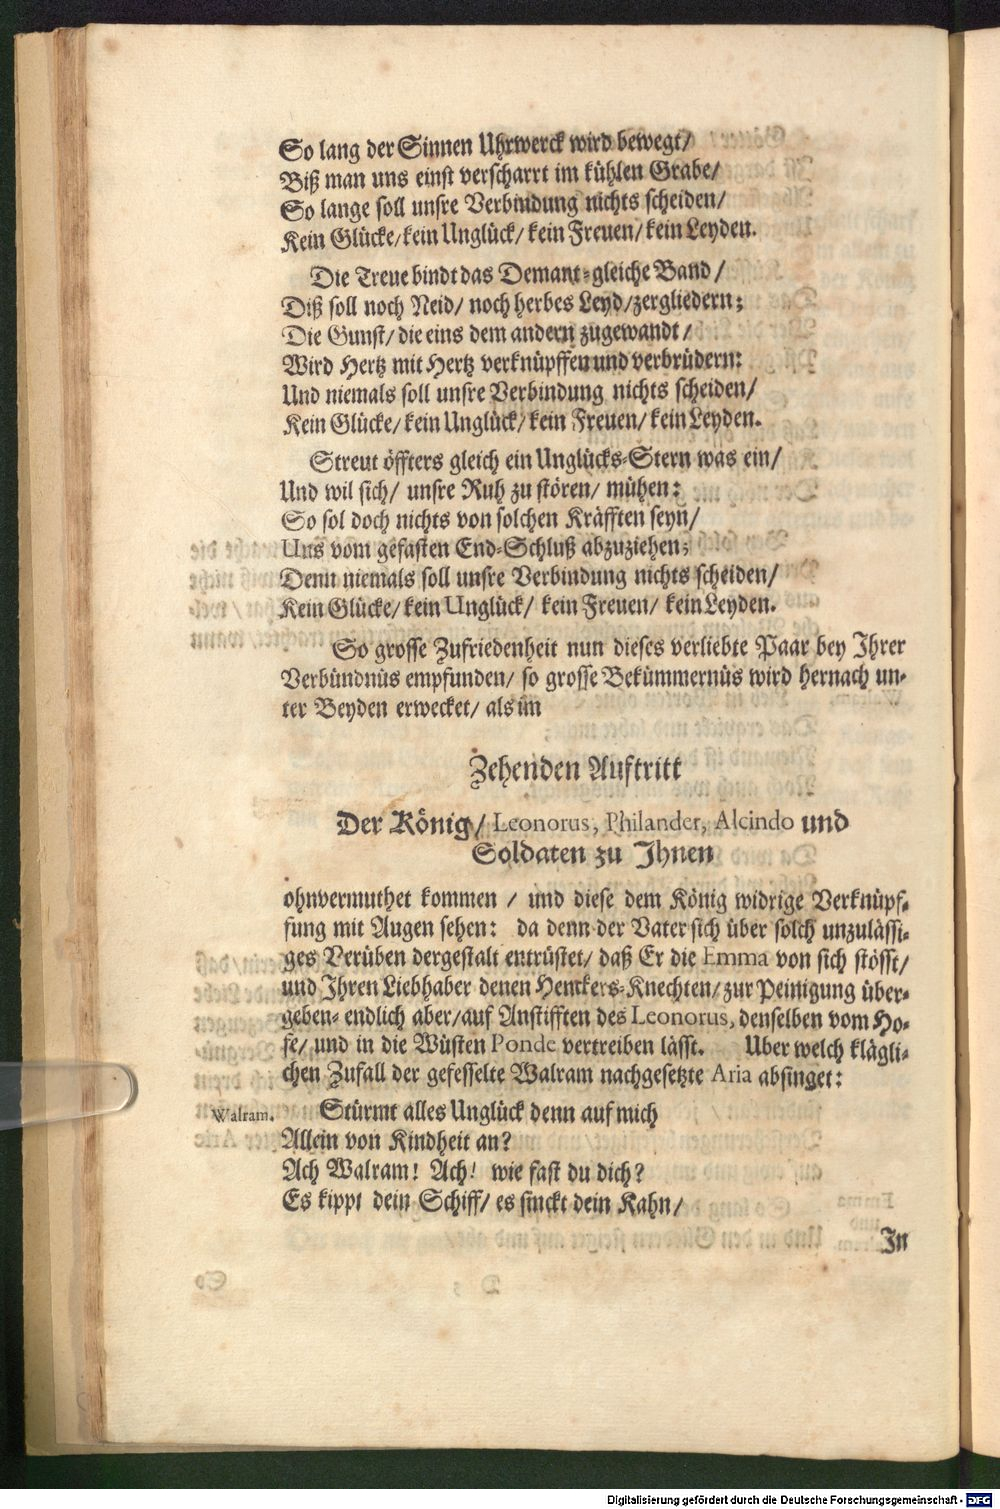 So lang der Sinnen Uhrwerck wird bewegt/
Biß man uns einst verscharrt im kühlen Grabe/
So lange soll unsre Verbindung nichts scheiden/
Kein Glücke/kein Unglück/kein Freuen/kein Leyden.
Die Treue bindt das Demant-gleiche Band/
Diß soll noch Neid/ noch herbes Leyd/zergliedern;
Die Gunst/die eins dem andern zugewandt/
Wird Hertz mit Hertz verknüpffen und verbrüdern:
Und niemals soll unsre Verbindung nichts scheiden/
Kein Glücke/kein Unglück/kein Freuen/kein Leyden.
Streut öffters gleich ein Unglücks-Stern was ein/
Und wil sich/ unsre Ruh zu stören/ mühen:
So sol doch nichts von solchen Kräfften seyn/
Uns vom gefasten End-Schluß abzuziehen;
Denn niemals soll unsre Verbindung nichts scheiden/
Kein Glücke/kein Unglück/ kein Freuen/ kein Leyden.
So grosse Zufriedenheit nun dieses verliebte Paar bey Ihrer
Verbündnüs empfunden/ so grosse Bekümmernüs wird hernach un-
ter Beyden erwecket/ als im
Zehenden Auftritt
Der König/ Leonorus, Philander, Alcindo und
Soldaten zu Ihnen
ohnvermuthet kommen / und diese dem König widrige Verknüpf-
fung mit Augen sehen: da denn der Vater sich über solch unzulässi-
ges Verüben dergestalt entrüstet/ daß Er die Emma von sich stösst/
und Ihren Liebhaber denen Henckers-Knechten/zur Peinigung über-
geben- endlich aber/auf Anstifften des Leonorus, denselben vom Ho-
fe/ und in die Wüsten Ponde vertreiben lässt. Uber welch klägli-
chen Zufall der gefesselte Walram nachgesetzte Aria absinget:
Walram. Stürmt alles Unglück denn auf mich
Allein von Kindheit an?
Ach Walram! Ach! wie fast du dich?
Es kippt dein Schiff/ es sinckt dein Kahn/
In
Digitalisierung gefördert durch die Deutsche Forschungsgemeinschaft - DFG